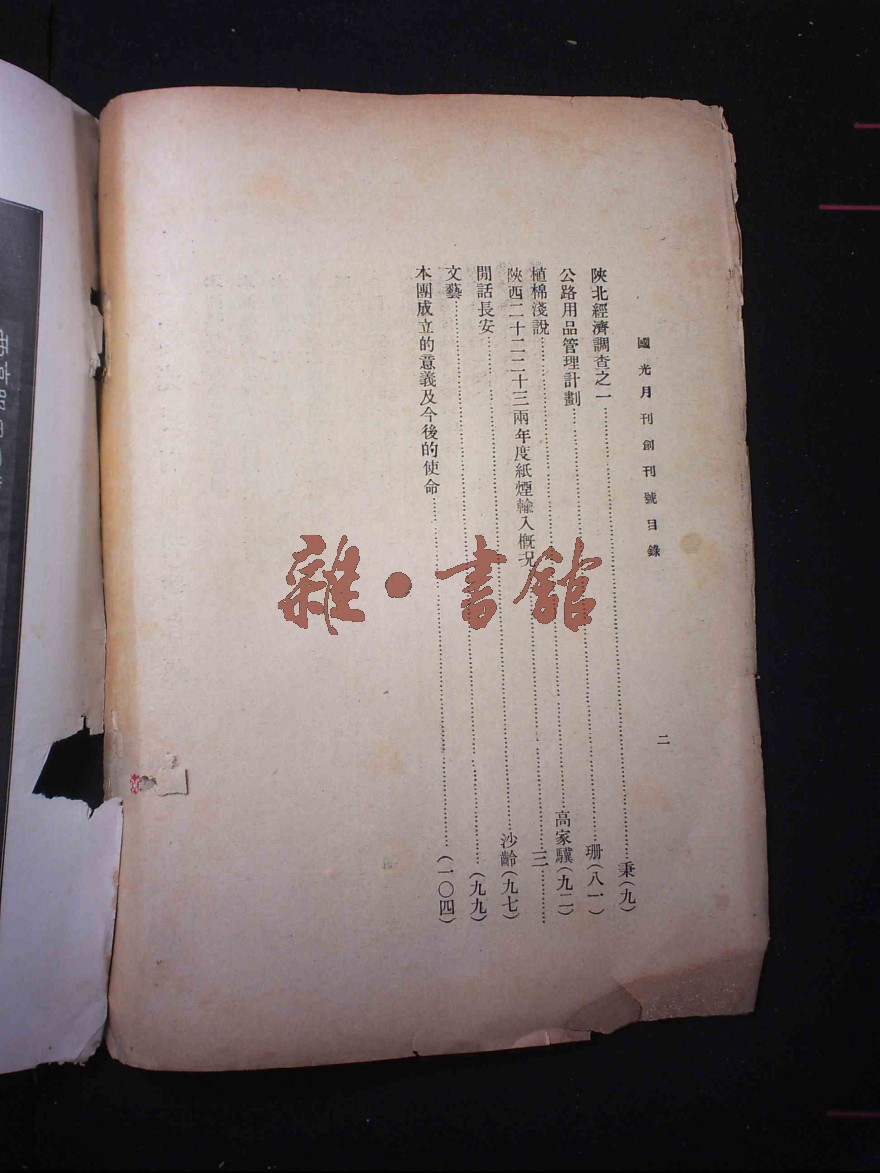 國光月刊創刊號目錄 二
陝北經濟調查之一……秉(九)
公路用品管理計劃……珊(八一)
植棉淺說……高家驥(九二)
陝西二十二二十三兩年度紙煙輸入概況……三……
閒話長安……沙齡(九七)
文藝……(九九)
本團成立的意義及今後的使命……(一〇四)
雜·書館